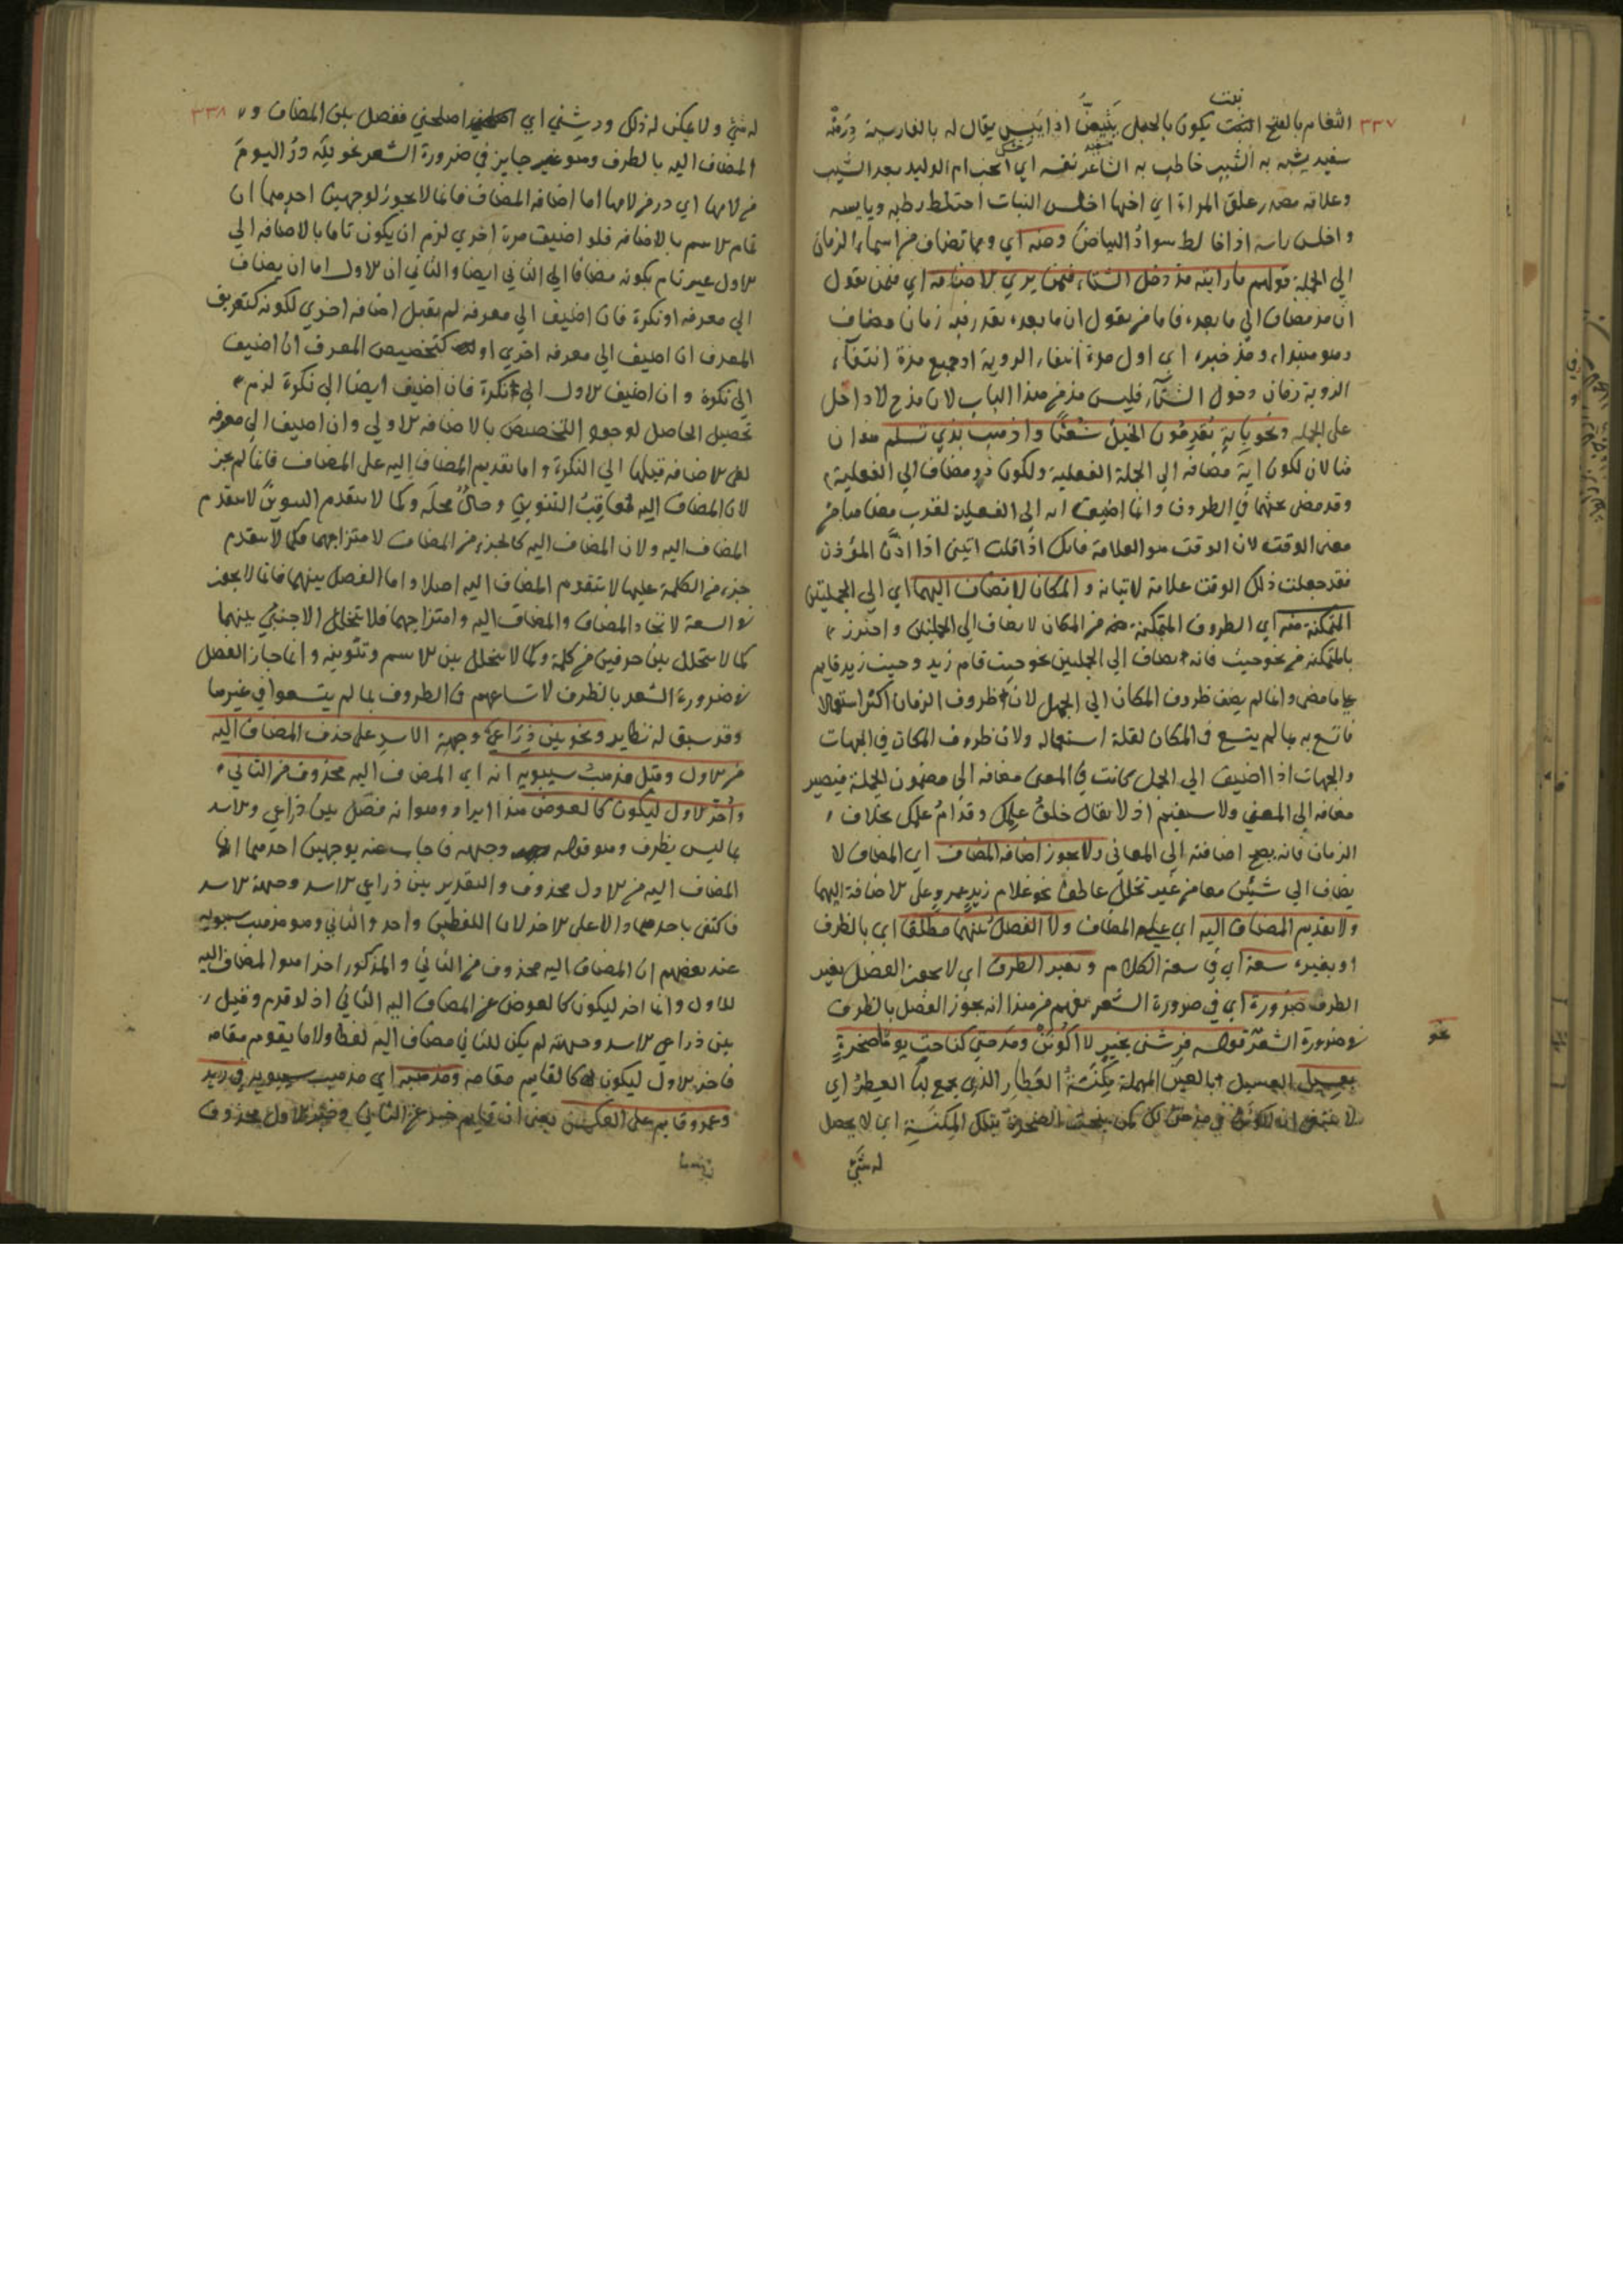 ٣٣٧
نبت
الثغام بالفتح النبت يكون بالجبل يَبْيَضُّ اذا يَبِس يقال له بالفارسية دِرَمْنَه
سفيد يشبه به الشيب خاطب به الشاعر نفسه اي اتحب ام الوليد بعد الشيب
وعلاقه مصدر علق المراة اي احبها اخلس النبات اختلط رطبه ويابسه
واخلس راسه اذا خالط سوادُ البياضَ ومنه اي ومما تضاف من اسماء الزمان
الي الجملة قولهم ما رايته مذ دخل الشتاء فيمن يري الاضافة اي فيمن يقول
ان مذ مضاف الي ما بعده فاما من يقول ان ما بعده بقدر فيه زمان مضاف
وهو مبتداء ومذ خبره اي اول مدة انتفاء الروية او جميع مدة انتفاء
الروية زمان دخول الشتاء فليس مذ من هذا الباب لان مذ ح لا داخل
على الجملة ونحو بِآيةِ تُقدِمُون الخيلَ شُعْثًا واذهب بذي تسلم هذان
مثالان لكون آية مضافة الى الجملة الفعلية ولكون ذو مضافا الي الفعلية
وقد مضى بحثهما في الظروف وانما اضيفت ايه الى الفعلية لقرب معناها من
معنى الوقت لان الوقت هو العلامة فانك اذا قلت اتيتني اذا اذّن المؤذن
فقد جعلت ذلك الوقت علامة لاتيانه والمكان لا تضاف اليهما اي الي الجملتين
المتمكنة منه اي الظروف المتمكنة من المكان لا يضاف الي الجملتين واحترز
بالمتمكنة من نحو حيث فانه يضاف الي الجملتين نحو حيث قام زيد وحيث زيد قايم
على ما مضى وانما لم يضف ظروف المكان الي الجمل لان ظروف الزمان اكثر استعمالا
فاتسع به ما لم يتسع في المكان لقلة استعماله ولان ظروف المكان في الجهات
والجهات اذا اضيفت الي الجمل كانت في المعنى مضافه الى مضمون الجملة فيصير
مضافه الى المعنى ولا يستقيم اذ لا يقال خلفُ علمك وقدامُ علمك بخلاف
الزمان فانه يصح اضافته الي المعاني ولا يجوز اضافة المضاف اي المضاف لا
يضاف الي شيئين معا من غير تخلل عاطف نحو غلام زيدِ عمرو على الاضافة اليهما
ولا تقديم المضاف اليه اي على المضاف ولا الفصل بينهما مطلقا اي بالظرف
او بغيره سعة اي في سعة الكلام وبغير الظرف اي لا يجوز الفصل بغير
الظرف ضرورة اي في ضرورة الشعر يفهم من هذا انه يجوز الفصل بالظرف
في ضرورة الشعر قوله فرشني بخير لا اكونن ومدحتي كناحت يوما صخرةٍ
نحو
بعسيل العسيل بالعين المهملة مِكْنَسَةُ العَطّارِ الذي يجمع بها العِطرَ اي
لا ينحت الصخرة بتلك المِكنسةِ اي لا يحصل
له شيء
٣٣٨
له شيء ولا يمكن له ذلك ورشني اي اصلحني ففصل بين المضاف و
المضاف اليه بالظرف وهو غير جايز في ضرورة الشعر نحو للّه درُّ اليومَ
من لامها اي در من لامها اما اضافه المضاف فانما لا يجوز لوجهين احدهما ان
تمام الاسم بالاضافه فلو اضيف مرة اخري لزم ان يكون تاما بالاضافه الي
الاول غير تام بكونه مضافا الي الثاني ايضا والثاني ان الاول اما ان يضاف
الي معرفه او نكرة فان اضيف الي معرفة لم يقبل اضافه اخري لكونه كتعريف
المعرف ان اضيف الي معرفه اخري او كتخصيص المعرف ان اضيف
الى نكرة وان اضيف الاول الي نكرة فان اضيف ايضا الي نكرة لزم
تحصيل الحاصل لوجود التخصيص بالاضافه الاولي وان اضيف الي معرفه
لغى الاضافه قبلها الي النكرة واما تقديم المضاف اليه على المضاف فانما لم يجز
لان المضاف اليه مُعاقِبُ التنوين وحالٌّ محلَّه وكما لا يتقدم التنوين لا يتقدم
المضاف اليه ولان المضاف اليه كالجزء من المضاف لامتزاجهما فكما لا يتقدم
جزء من الكلمة عليها لا يتقدم المضاف اليه اصلا واما الفصل بينهما فانما لا يجوز
في السعة لاتحاد المضاف والمضاف اليه وامتزاجهما فلا يتخلل الاجنبي بينهما
كما لا يتخلل بين حرفين من كلمة وكما لا يتخلل بين الاسم وتنوينه وانما جاز الفصل
في ضرورة الشعر بالظرف لاتساعهم في الظروف بما لم يتسعوا في غيرها
وقد سبق له نظاير ونحو بين ذِرَاعَيْ وجبهة الاسدِ على حذف المضاف اليه
من الاول وقبل مذهب سيبويه انه اي المضاف اليه محذوف من الثاني
واُخّر الاول ليكون كالعوض هذا ايراد وهو انه فصل بين ذراعي والاسد
بما ليس بظرف وهو قوله وجبهه فاجاب عنه بوجهين احدهما ان
المضاف اليه من الاول محذوف والتقدير بين ذراعي الاسد وجبهة الاسد
فاكتفى باحدهما دالا على الاخر لان اللفظين واحد والثاني وهو مذهب سيبويه
عند بعضهم ان المضاف اليه محذوف من الثاني والمذكور اخرا هو المضاف اليه
للاول وانما اخر ليكون كالعوض عن المضاف اليه الثاني اذ لو قدم وقيل
بين ذراعي الاسد وجبهة لم يكن للثاني مضاف اليه لفظا ولا ما يقوم مقامه
فاخر الاول ليكون كالقايم مقامه ومذهبه اي مذهب سيبويه في زيد
وعمرو قايم على العكس يعنى ان قايم خبر عن الثاني وخبر الاول محذوف